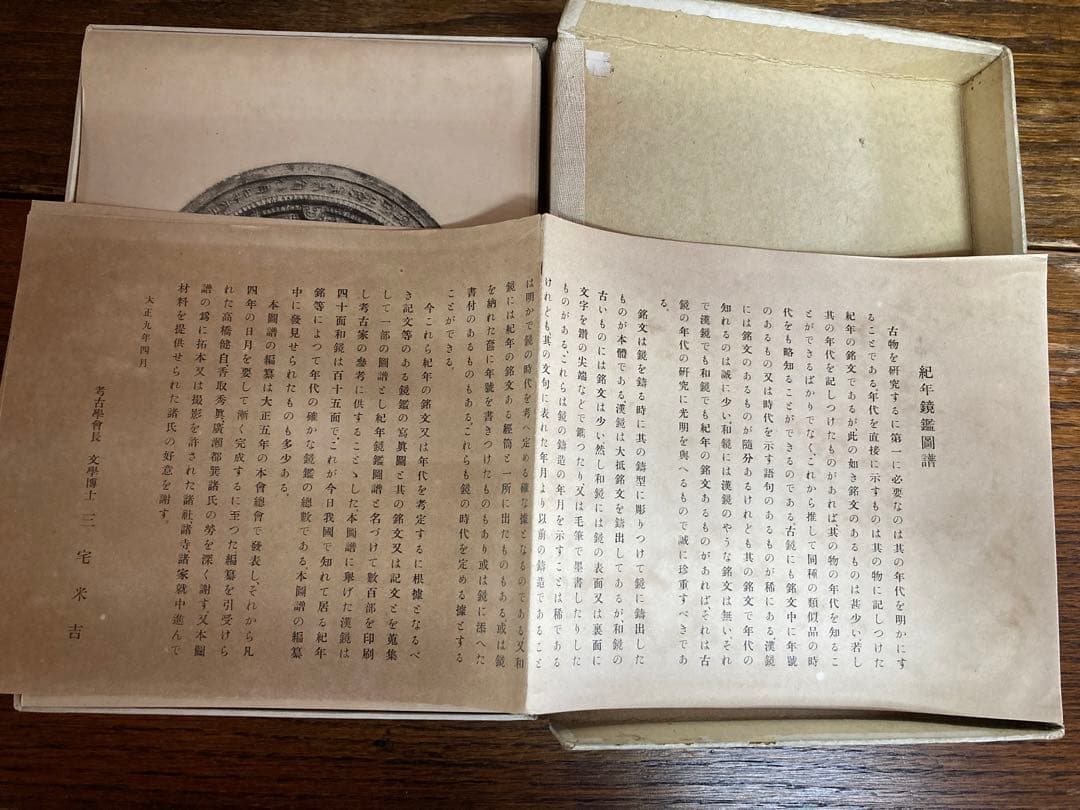 紀年鏡鑑圖譜
古物を研究するに第一に必要なのは其の年代を明かにす
ることである、年代を直接に示すものは其の物に記しつけた
紀年の銘文であるが此の如き銘文のあるものは甚少い若し
其の年代を記しつけたものがあれば其の物の年代を知るこ
とができるばかりでなく、これから推して同種の類似品の時
代をも略知ることができるのである古鏡にも銘文中に年號
のあるもの又は時代を示す語句のあるものが稀にある、漢鏡
には銘文のあるものが随分あるけれども其の銘文で年代の
知れるのは誠に少い和鏡には漢鏡のやうな銘文は無い、それ
で漢鏡でも和鏡でも紀年の銘文あるものがあれば、それは古
鏡の年代の研究に光明を與へるもので誠に珍重すべきであ
る。
銘文は鏡を鑄る時に其の鑄型に彫りつけて鏡に鑄出した
ものが本體である、漢鏡は大抵銘文を鑄出してあるが和鏡の
古いものには銘文は少い、然し和鏡には鏡の表面又は裏面に
文字を鑽の尖端などで鐫つたり又は毛筆で墨書したりした
ものがある、これらは鏡の鑄造の年月を示すことは稀である
けれども、其の文句に表れた年月より以前の鑄造であること
は明かで鏡の時代を考へ定める確な據となるものである又和
鏡には紀年の銘文ある經筒と一所に出たものもある、或は鏡
を納れた奩に年號を書きつけたものもあり或は鏡に添へた
書付のあるものもある、これらも鏡の時代を定める據とする
ことができる。
今これら紀年の銘文又は年代を考定するに根據となるべ
き記文等のある鏡鑑の寫眞圖と其の銘文又は記文とを蒐集
して一部の圖譜とし紀年鏡鑑圖譜と名づけて數百部を印刷
し考古家の參考に供することゝした本圖譜に擧げた漢鏡は
四十面和鏡は百十五面で、これが今日我國で知れて居る紀年
銘等によつて年代の確かな鏡鑑の總數である本圖譜の編纂
中に發見せられたものも多少ある。
本圖譜の編纂は大正五年の本會總會で發表し、それから凡
四年の日月を要して漸く完成するに至つた編纂を引受けら
れた高橋健自香取秀眞廣瀬都巽諸氏の勞を深く謝す、又本圖
譜の爲に拓本又は撮影を許された諸社諸寺諸家就中進んで
材料を提供せられた諸氏の好意を謝す。
大正九年四月
考古學會長 文學博士 三宅米吉